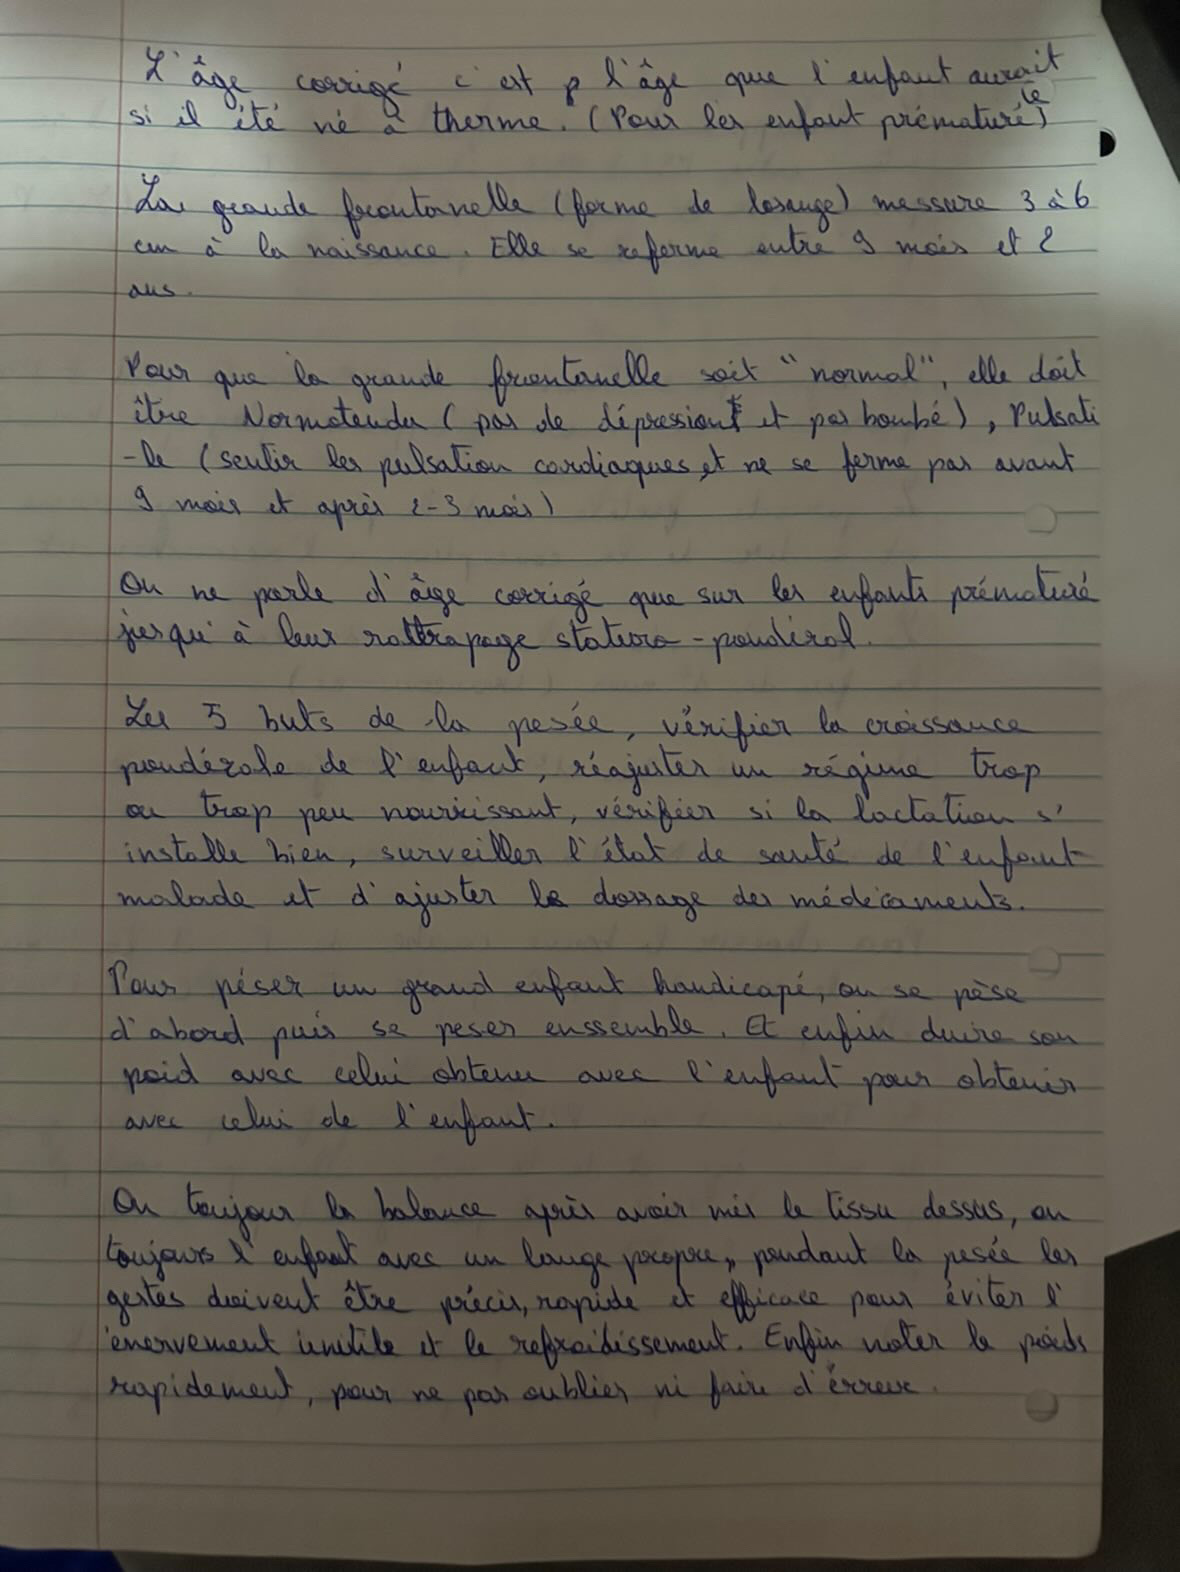 L'âge corrigé c'est l'âge que l'enfant aurait
si il été né à therme. (Pour les enfant prématuré)
La grande frontanelle (forme de losange) messure 3 à 6
cm à la naissance. Elle se referme entre 9 mois et 2
ans.
Pour que la grande frontanelle soit "normal", elle doit
être Normotendu (pas de dépression et pas bombé), Pulsati
-le (sentir les pulsation cardiaques, et ne se ferme pas avant
9 mois et après 2-3 mois)
On ne parle d'âge corrigé que sur les enfants prématuré
jusqu'à leur rattrapage staturo-pondéral.
Les 5 buts de la pesée, vérifier la croissance
pondérale de l'enfant, réajuster un régime trop
ou trop peu nourrissant, vérifier si la lactation s'
installe bien, surveiller l'état de santé de l'enfant
malade et d'ajuster le dossage des médicaments.
Pour péser un grand enfant handicapé, on se pèse
d'abord puis se peser enssemble. Et enfin duire son
poid avec celui obtenu avec l'enfant pour obtenir
avec celui de l'enfant.
On toujour la balance après avoir mis le tissu dessus, on
toujours l'enfant avec un lange propre, pendant la pesée les
gestes doivent être précis, rapide et efficace pour éviter l'
énervement inutile et le refroidissement. Enfin noter le poids
rapidement, pour ne pas oublier ni faire d'érreur.